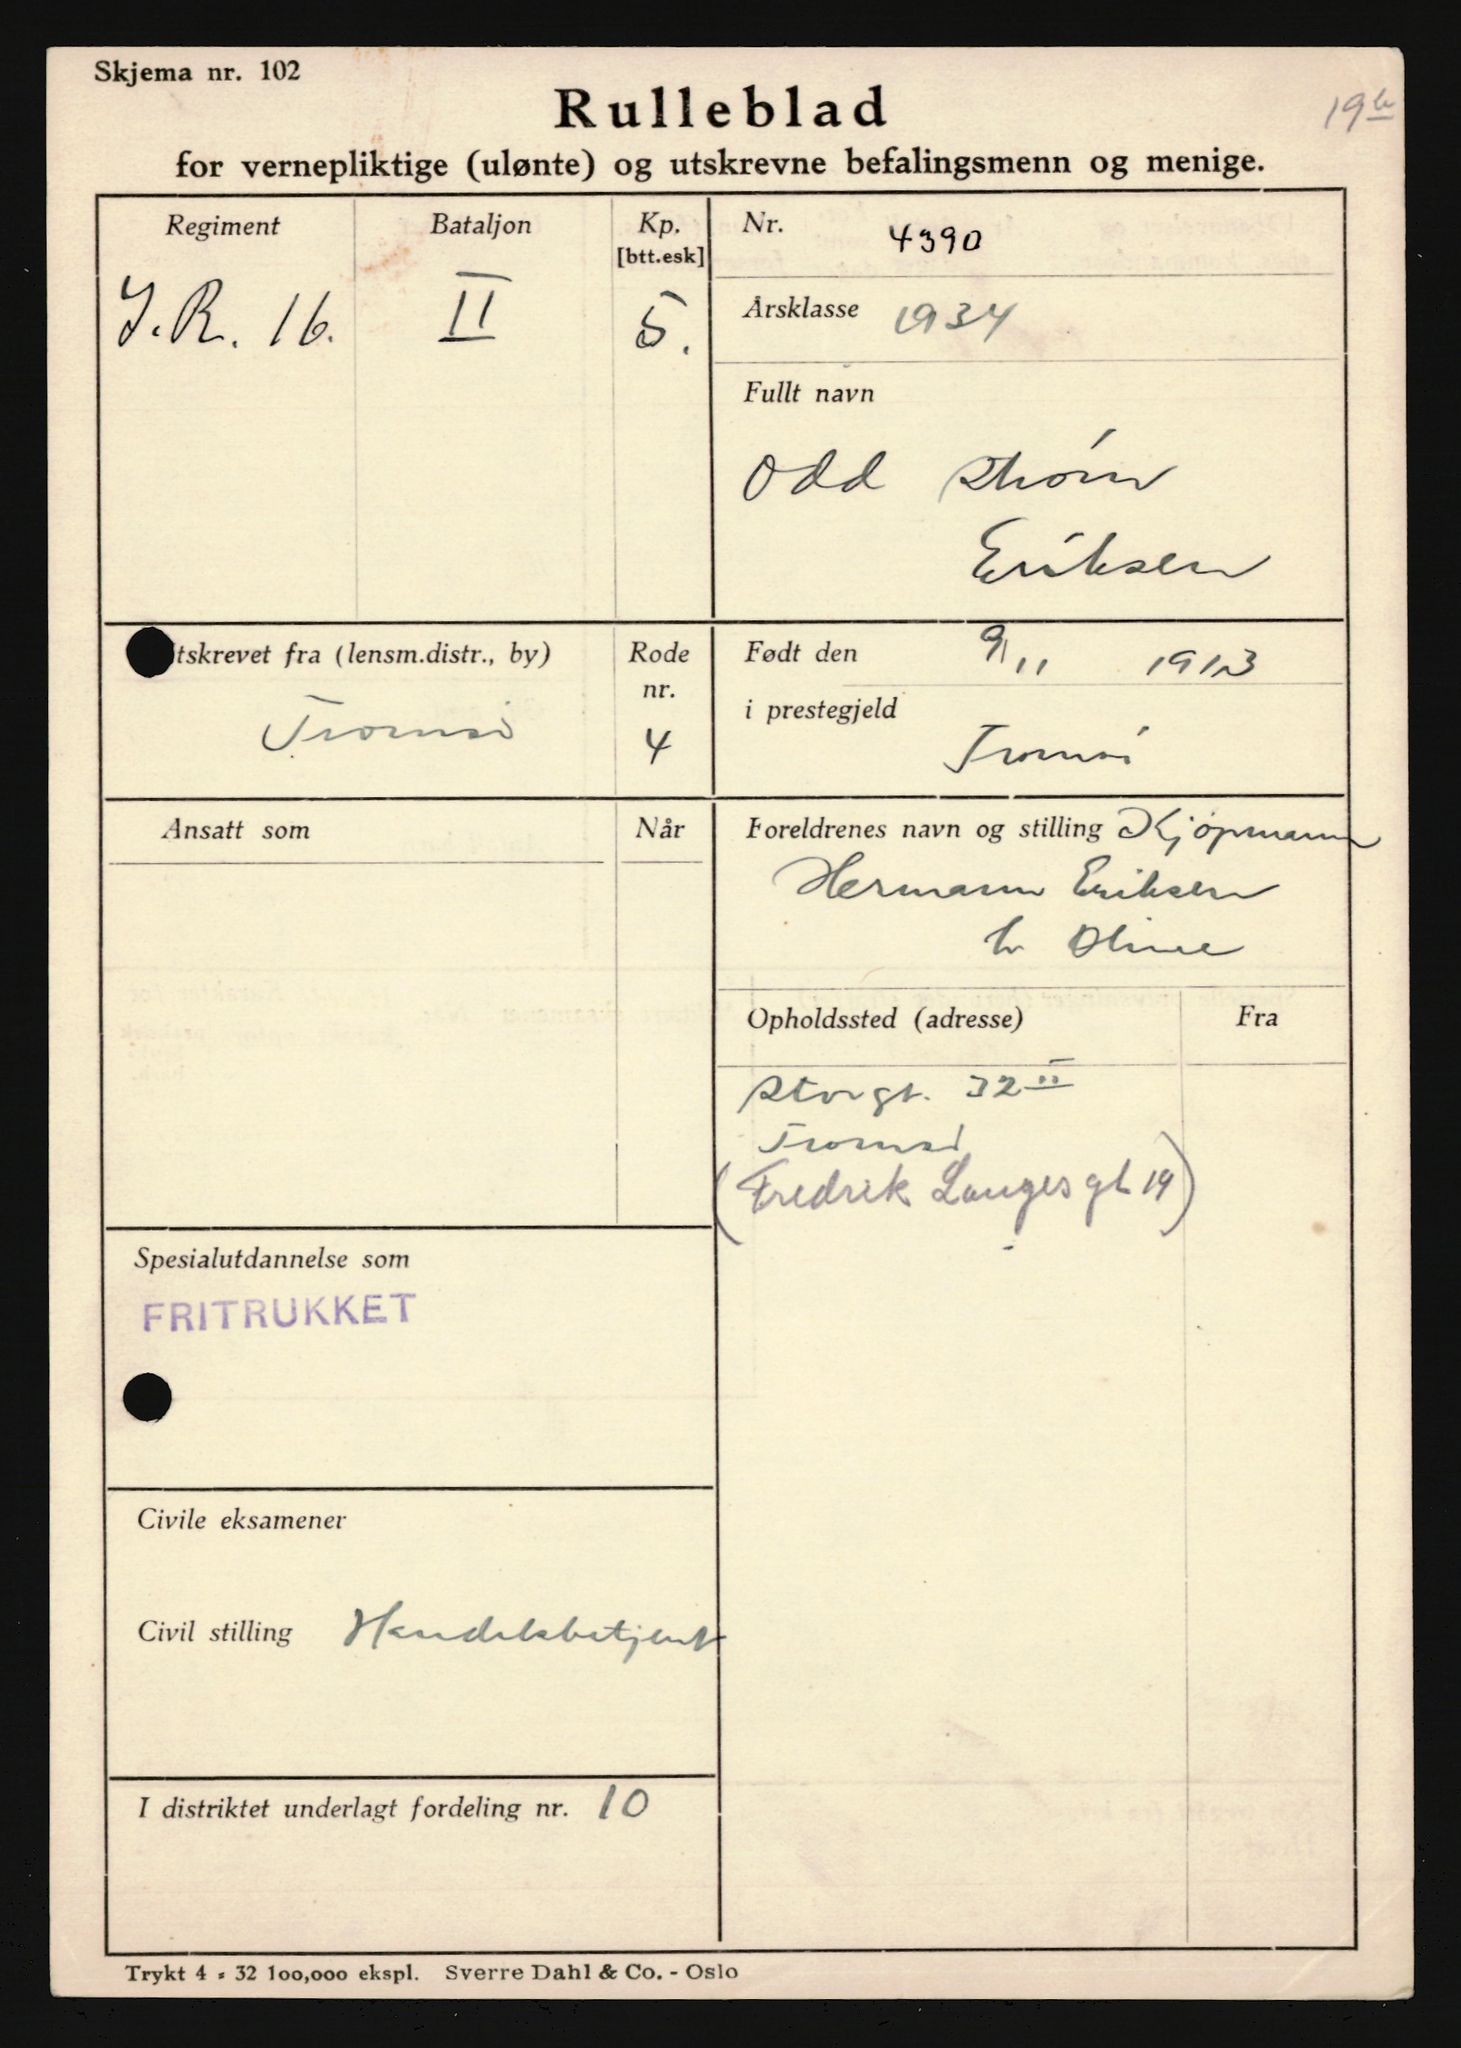 Skjema nr. 102
19 b
Rulleblad
for vernepliktige (ulønte) og utskrevne befalingsmenn og menige.
Regiment Bataljon Kp. [btt.esk]
I.R. 16. II 5.
Nr. 4390
Årsklasse 1934
Fullt navn
Odd Strøm
Eriksen
tskrevet fra (lensm.distr., by) Rode nr.
Tromsø 4
Født den 9/11 1913
i prestegjeld
Tromsø
Ansatt som Når
Foreldrenes navn og stilling Kjøpmann
Hermann Eriksen
h Oline
Opholdssted (adresse) Fra
Storgt. 32 II
Tromsø
(Fredrik Langes gt 19)
Spesialutdannelse som
FRITRUKKET
Civile eksamener
Civil stilling Handelsbetjent
I distriktet underlagt fordeling nr. 10
Trykt 4 - 32 100,000 ekspl. Sverre Dahl & Co. - Oslo